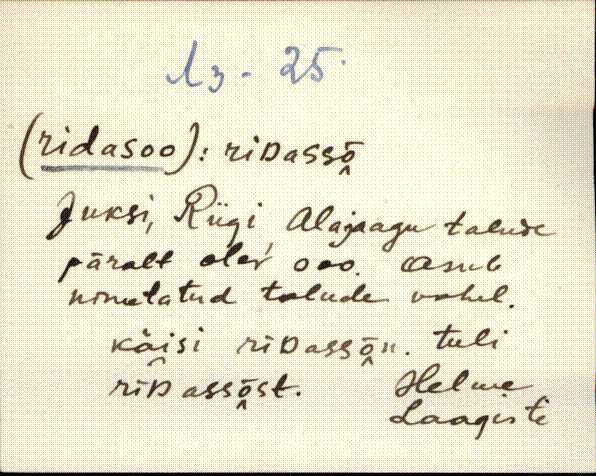 13 - 25.
(ridasoo): riDassọ̄
Juksi, Riigi, Alajaagu talude
päralt olev soo. Asub
nimetatud talude vahel.
käisi riDassọ̄n. tuli
riDassọ̄st. Helme
Laagiste